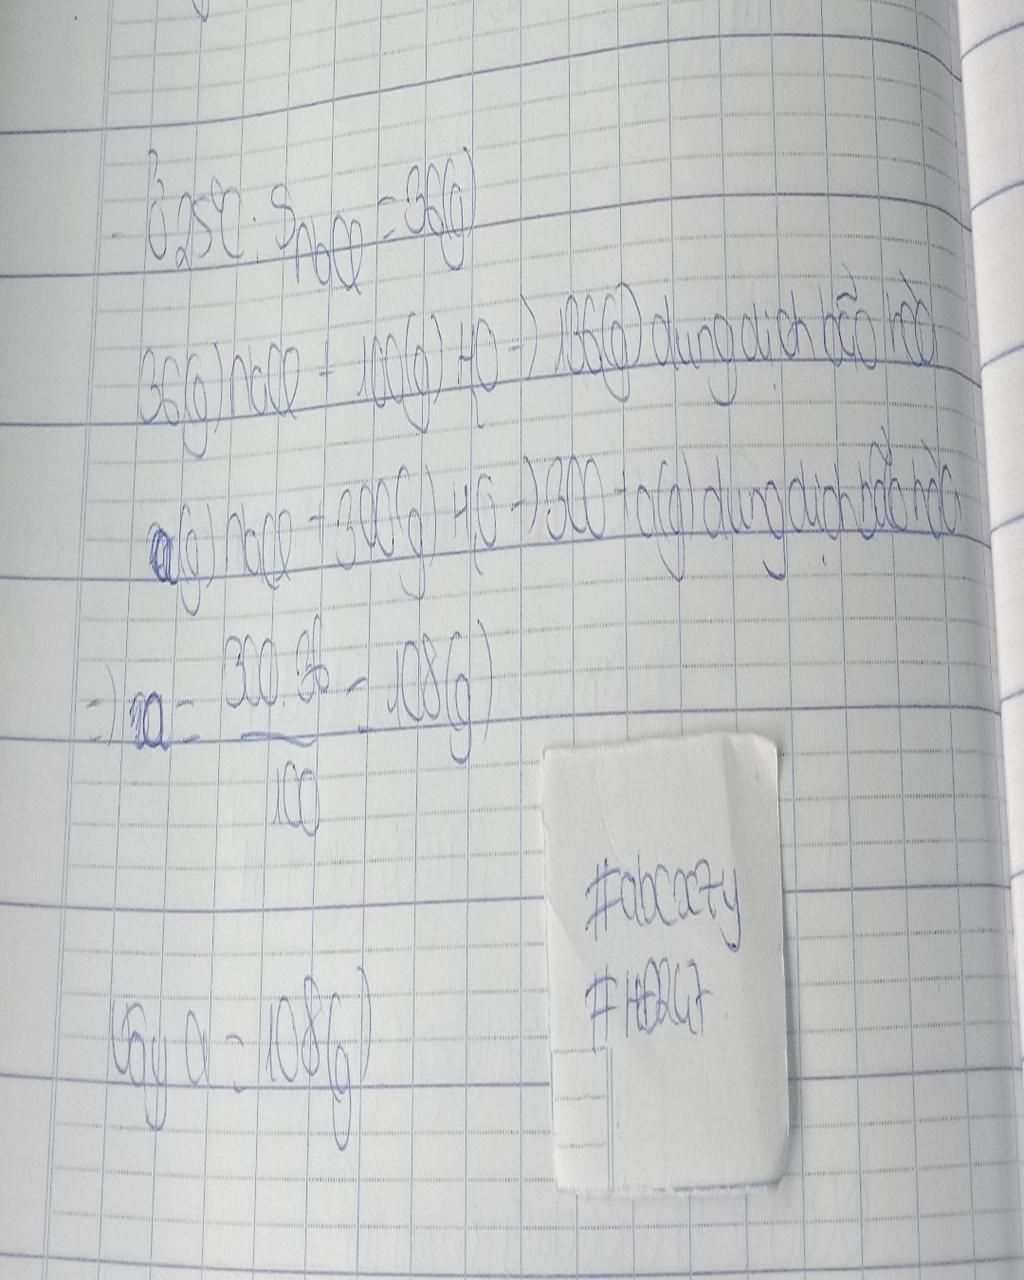 - Ở 25°C: S NaCl = 36(g)
36(g) NaCl + 100(g) H₂O => 136(g) dung dịch bão hoà
a(g) NaCl + 300(g) H₂O => 300 + a(g) dung dịch bão hoà
=> a = 300.36 / 100 = 108(g)
Vậy a = 108(g)
#abcxz7y